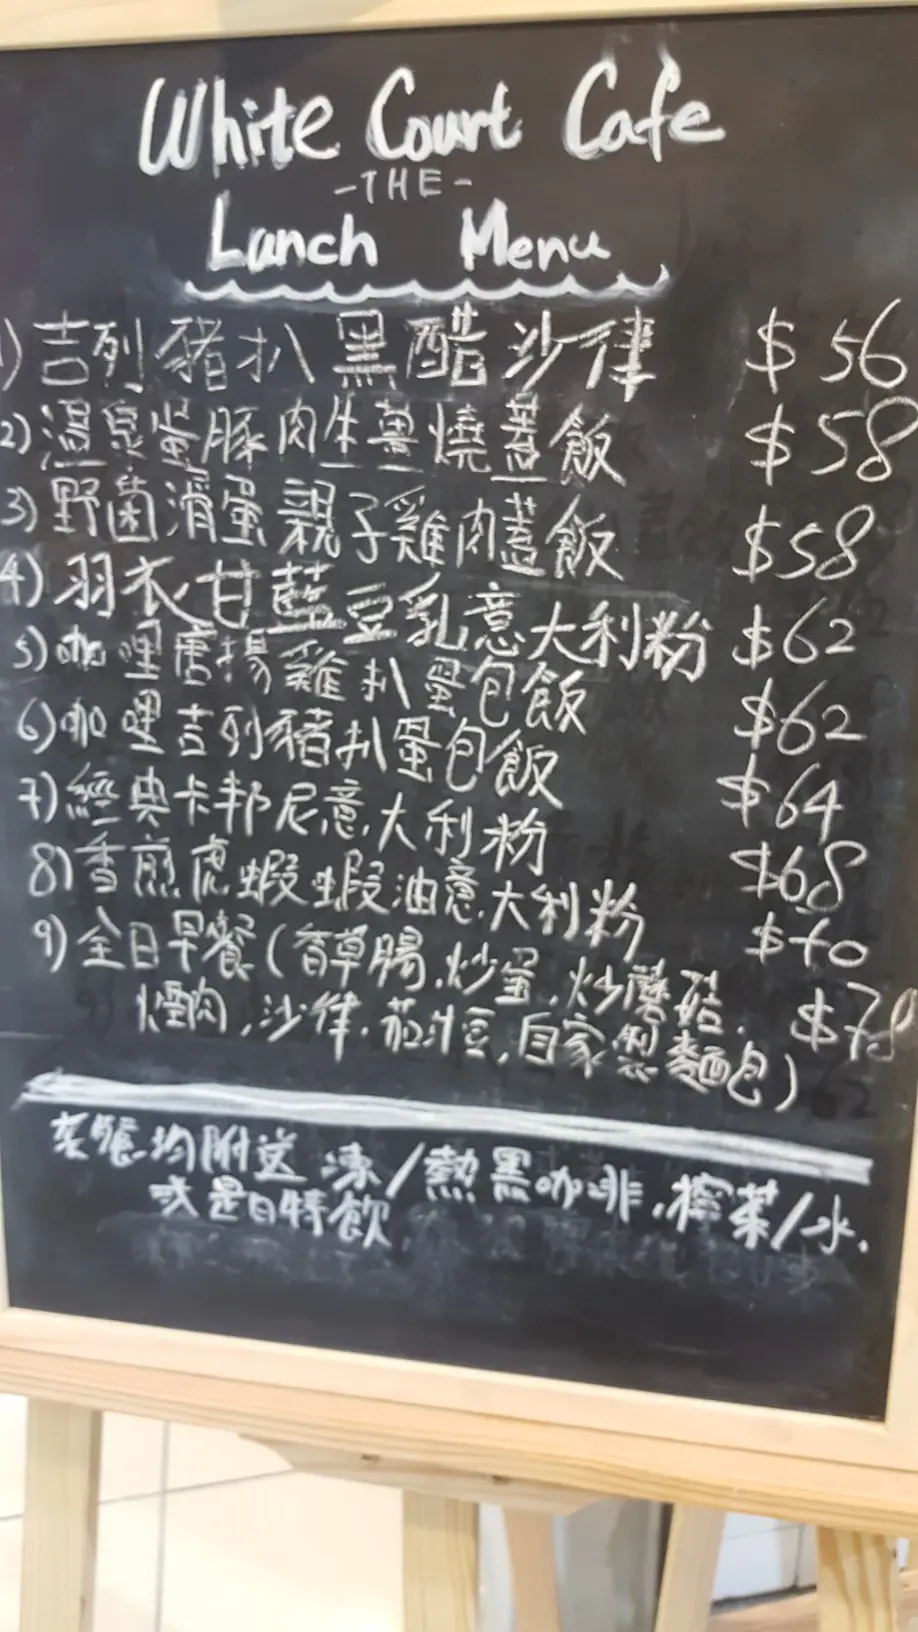 White Court Cafe
-THE-
Lanch Menu
1) 吉列豬扒黑醋沙律 $56
2) 溫泉蛋豚肉生薑燒蓋飯 $58
3) 野菌滑蛋親子雞肉蓋飯 $58
4) 羽衣甘藍豆乳意大利粉 $62
5) 咖哩唐揚雞扒蛋包飯 $62
6) 咖哩吉列豬扒蛋包飯 $64
7) 經典卡邦尼意大利粉 $68
8) 香煎虎蝦蝦油意大利粉 $70
9) 全日早餐(香草腸,炒蛋,炒蘑菇, $78
煙肉,沙律,茄汁豆,自家製麵包)
均附送凍/熱黑咖啡,檸茶/水,
或是日特飲